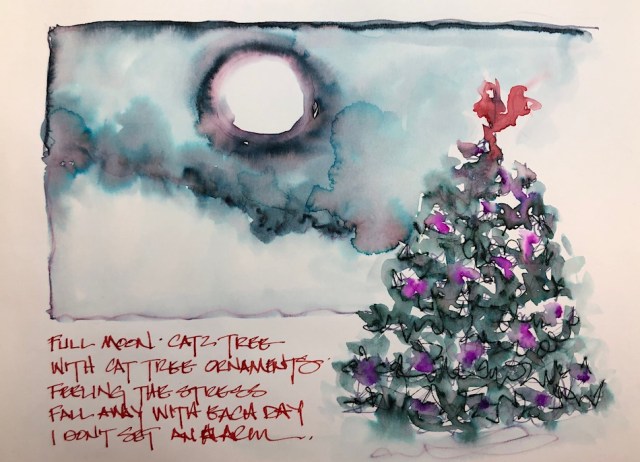 FULL MOON · CATZ TREE
WITH CAT TREE ORNAMENTS
FEELING THE STRESS
FALL AWAY WITH EACH DAY
I DON'T SET AN ALARM...